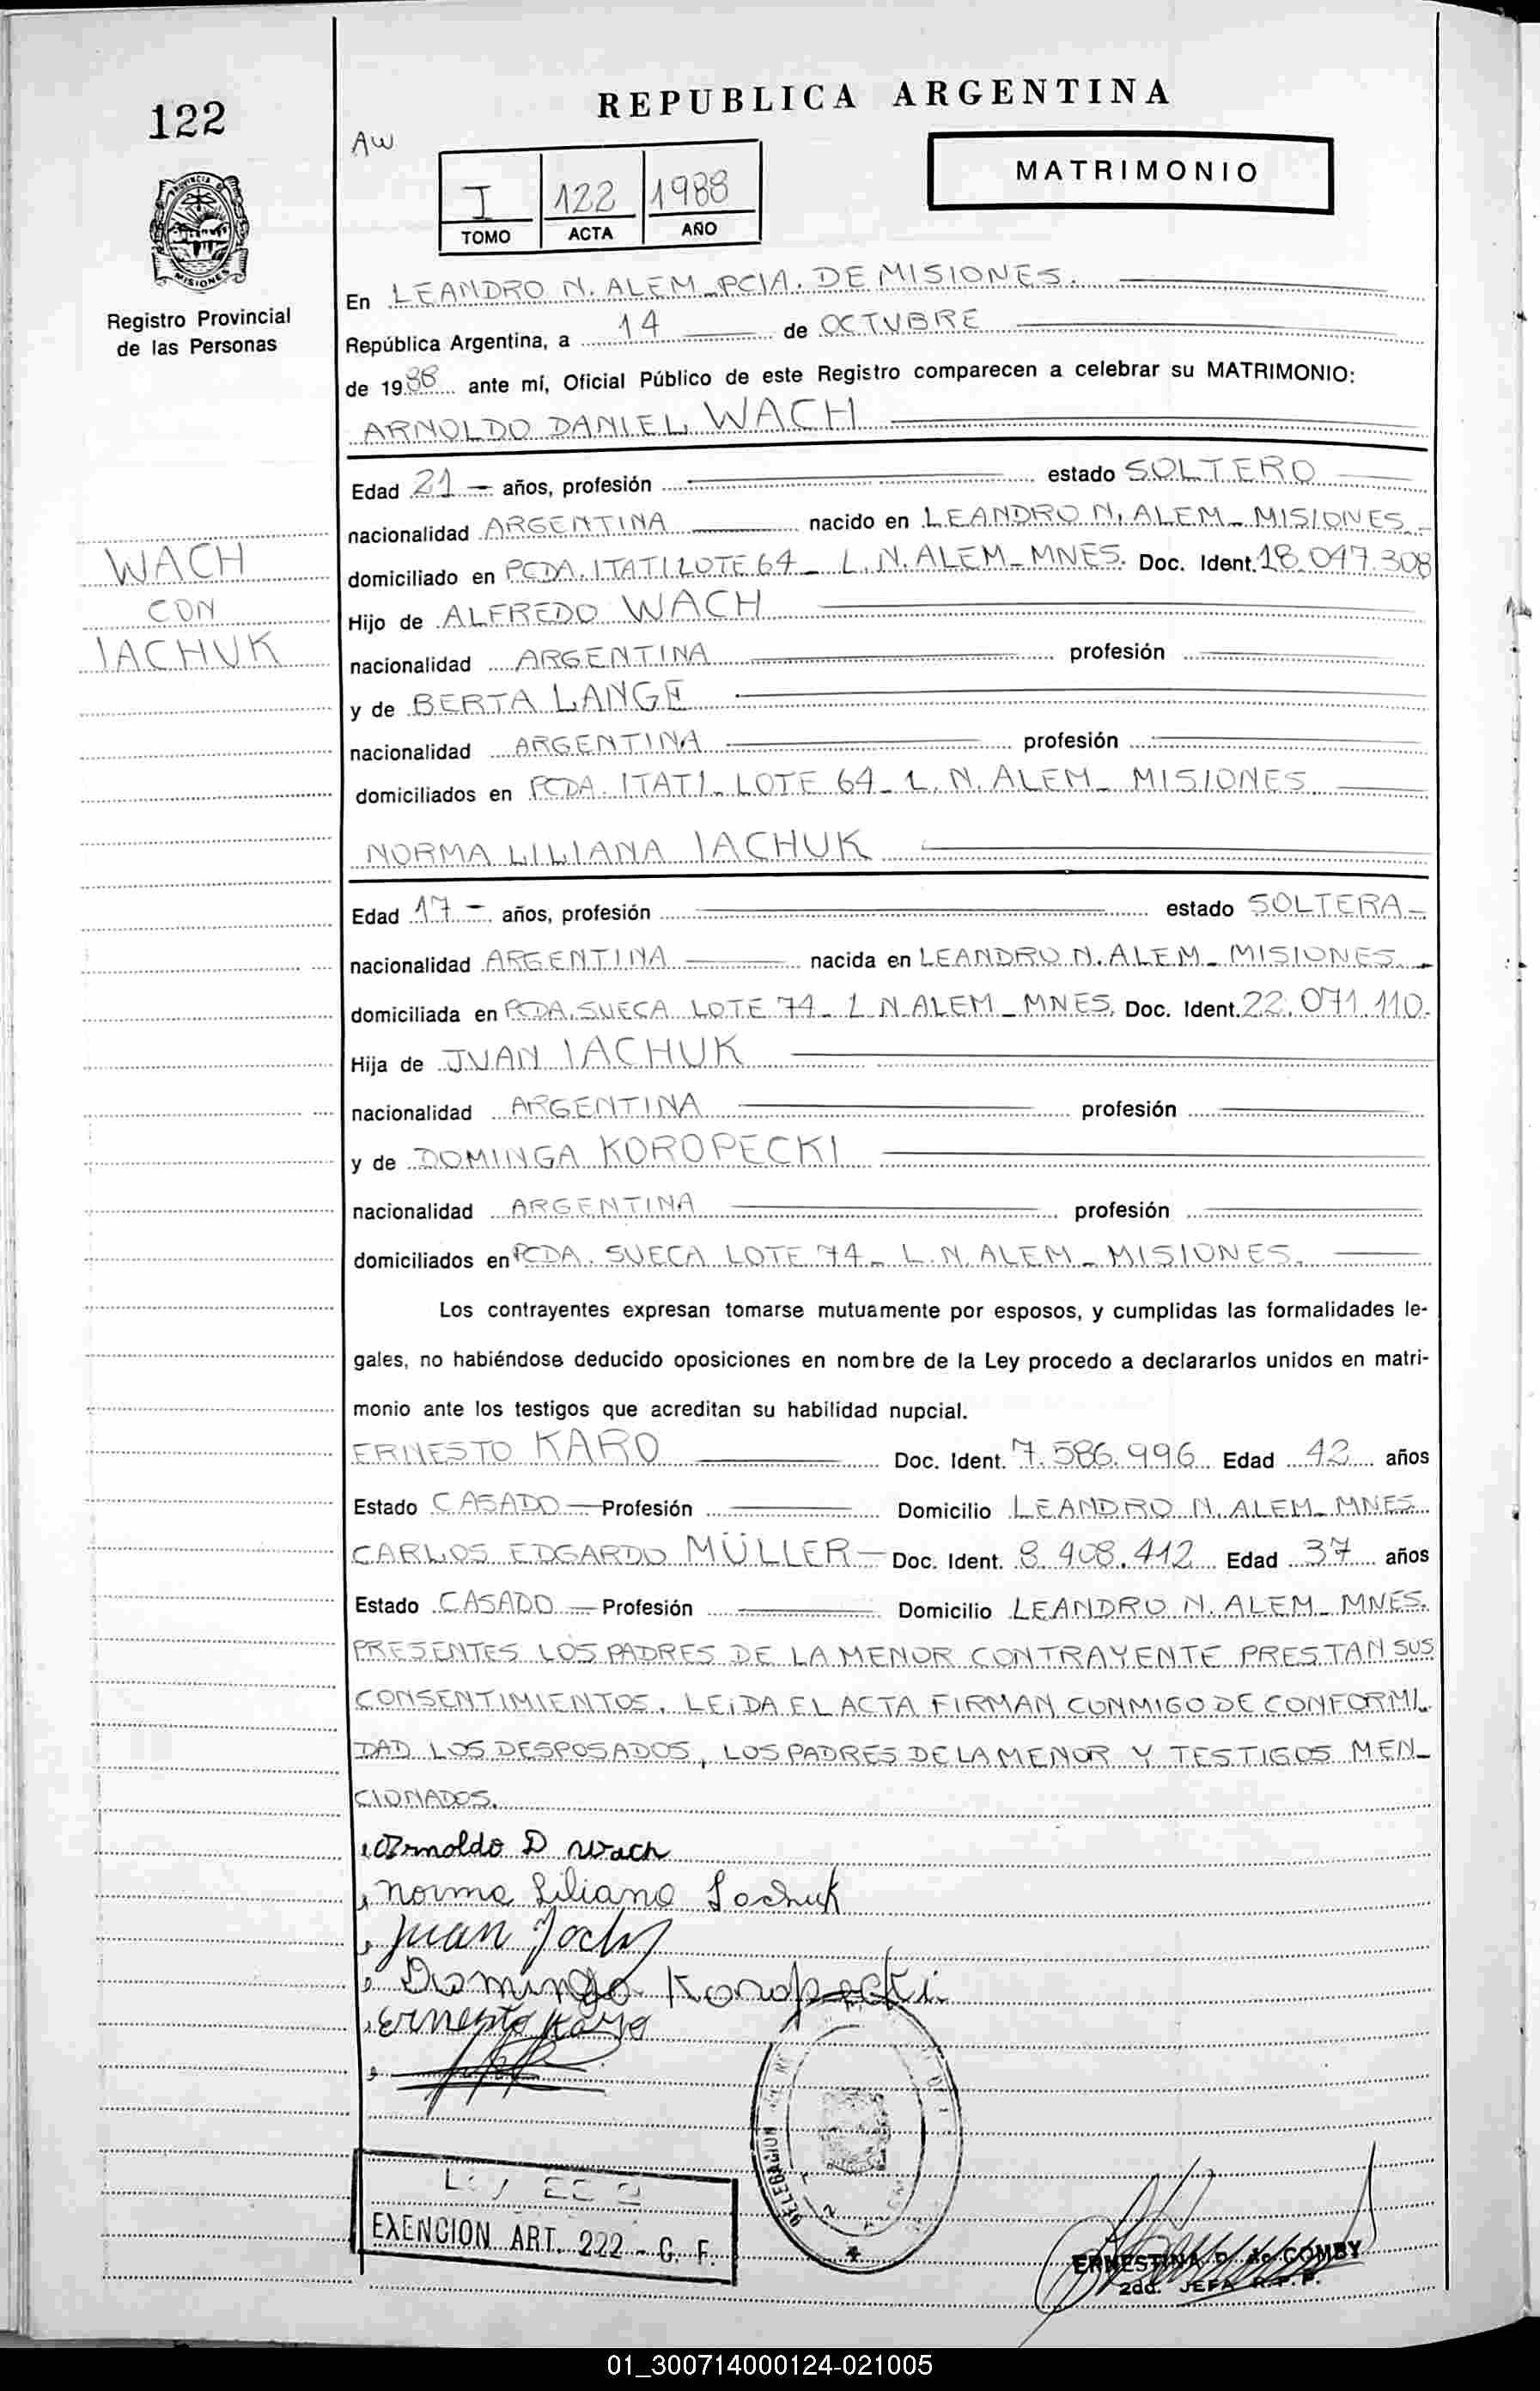 122
REPUBLICA ARGENTINA
AW
MATRIMONIO
I 122 1988
TOMO ACTA AÑO
PROVINCIA DE
MISIONES
Registro Provincial
de las Personas
En LEANDRO N. ALEM - PCIA. DE MISIONES.
República Argentina, a 14 de OCTUBRE
de 1988 ante mí, Oficial Público de este Registro comparecen a celebrar su MATRIMONIO:
ARNOLDO DANIEL WACH
Edad 21 - años, profesión estado SOLTERO
nacionalidad ARGENTINA nacido en LEANDRO N. ALEM - MISIONES -
WACH
CON
IACHUK
domiciliado en PCDA. ITATI LOTE 64 - L. N. ALEM - MNES. Doc. Ident. 18.047.308
Hijo de ALFREDO WACH
nacionalidad ARGENTINA profesión
y de BERTA LANGE
nacionalidad ARGENTINA profesión
domiciliados en PCDA. ITATI - LOTE 64 - L. N. ALEM - MISIONES
NORMA LILIANA IACHUK
Edad 17 - años, profesión estado SOLTERA -
nacionalidad ARGENTINA nacida en LEANDRO N. ALEM - MISIONES. -
domiciliada en PCDA. SUECA LOTE 74 - L N ALEM - MNES. Doc. Ident. 22.071.110.
Hija de JUAN IACHUK
nacionalidad ARGENTINA profesión
y de DOMINGA KOROPECKI
nacionalidad ARGENTINA profesión
domiciliados en PCDA. SUECA LOTE 74 - L. N. ALEM - MISIONES.
Los contrayentes expresan tomarse mutuamente por esposos, y cumplidas las formalidades le-
gales, no habiéndose deducido oposiciones en nombre de la Ley procedo a declararlos unidos en matri-
monio ante los testigos que acreditan su habilidad nupcial.
ERNESTO KARO Doc. Ident. 7.586.996 Edad 42 años
Estado CASADO - Profesión Domicilio LEANDRO N. ALEM - MNES.
CARLOS EDGARDO MÜLLER - Doc. Ident. 8.408.412 Edad 37 años
Estado CASADO - Profesión Domicilio LEANDRO N. ALEM - MNES.
PRESENTES LOS PADRES DE LA MENOR CONTRAYENTE PRESTAN SUS
CONSENTIMIENTOS. LEIDA EL ACTA FIRMAN CONMIGO DE CONFORMI-
DAD LOS DESPOSADOS, LOS PADRES DE LA MENOR Y TESTIGOS MEN-
CIONADOS.
Arnoldo D Wach
Norma Liliana Iachuk
Juan
Dominga Koropecki
Ernesto Karo
DELEGACION
Ley
EXENCION ART. 222 - C. F.
ERNESTINA D. de COMBY
2da. JEFA R.P.P.
01_300714000124-021005